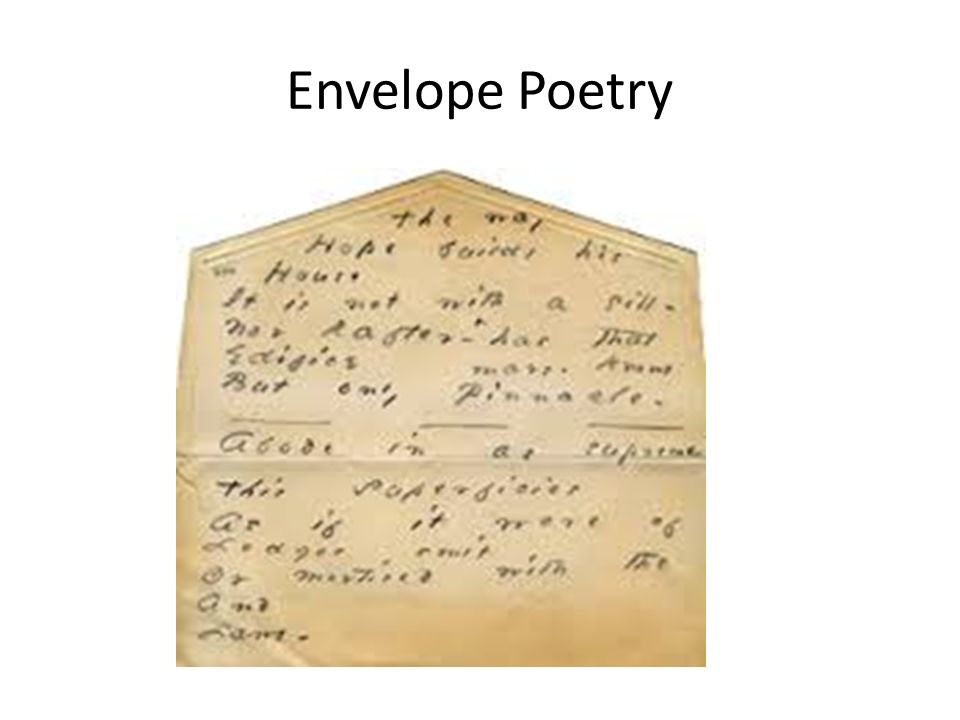 Envelope Poetry
The way
Hope builds his
House
It is not with a sill -
Nor Rafter - has that
Edifice
But only Pinnacle -
Abode in as supreme
This superficies
As if it were of
Ledges smit
Or mortised with the
And
Laws -